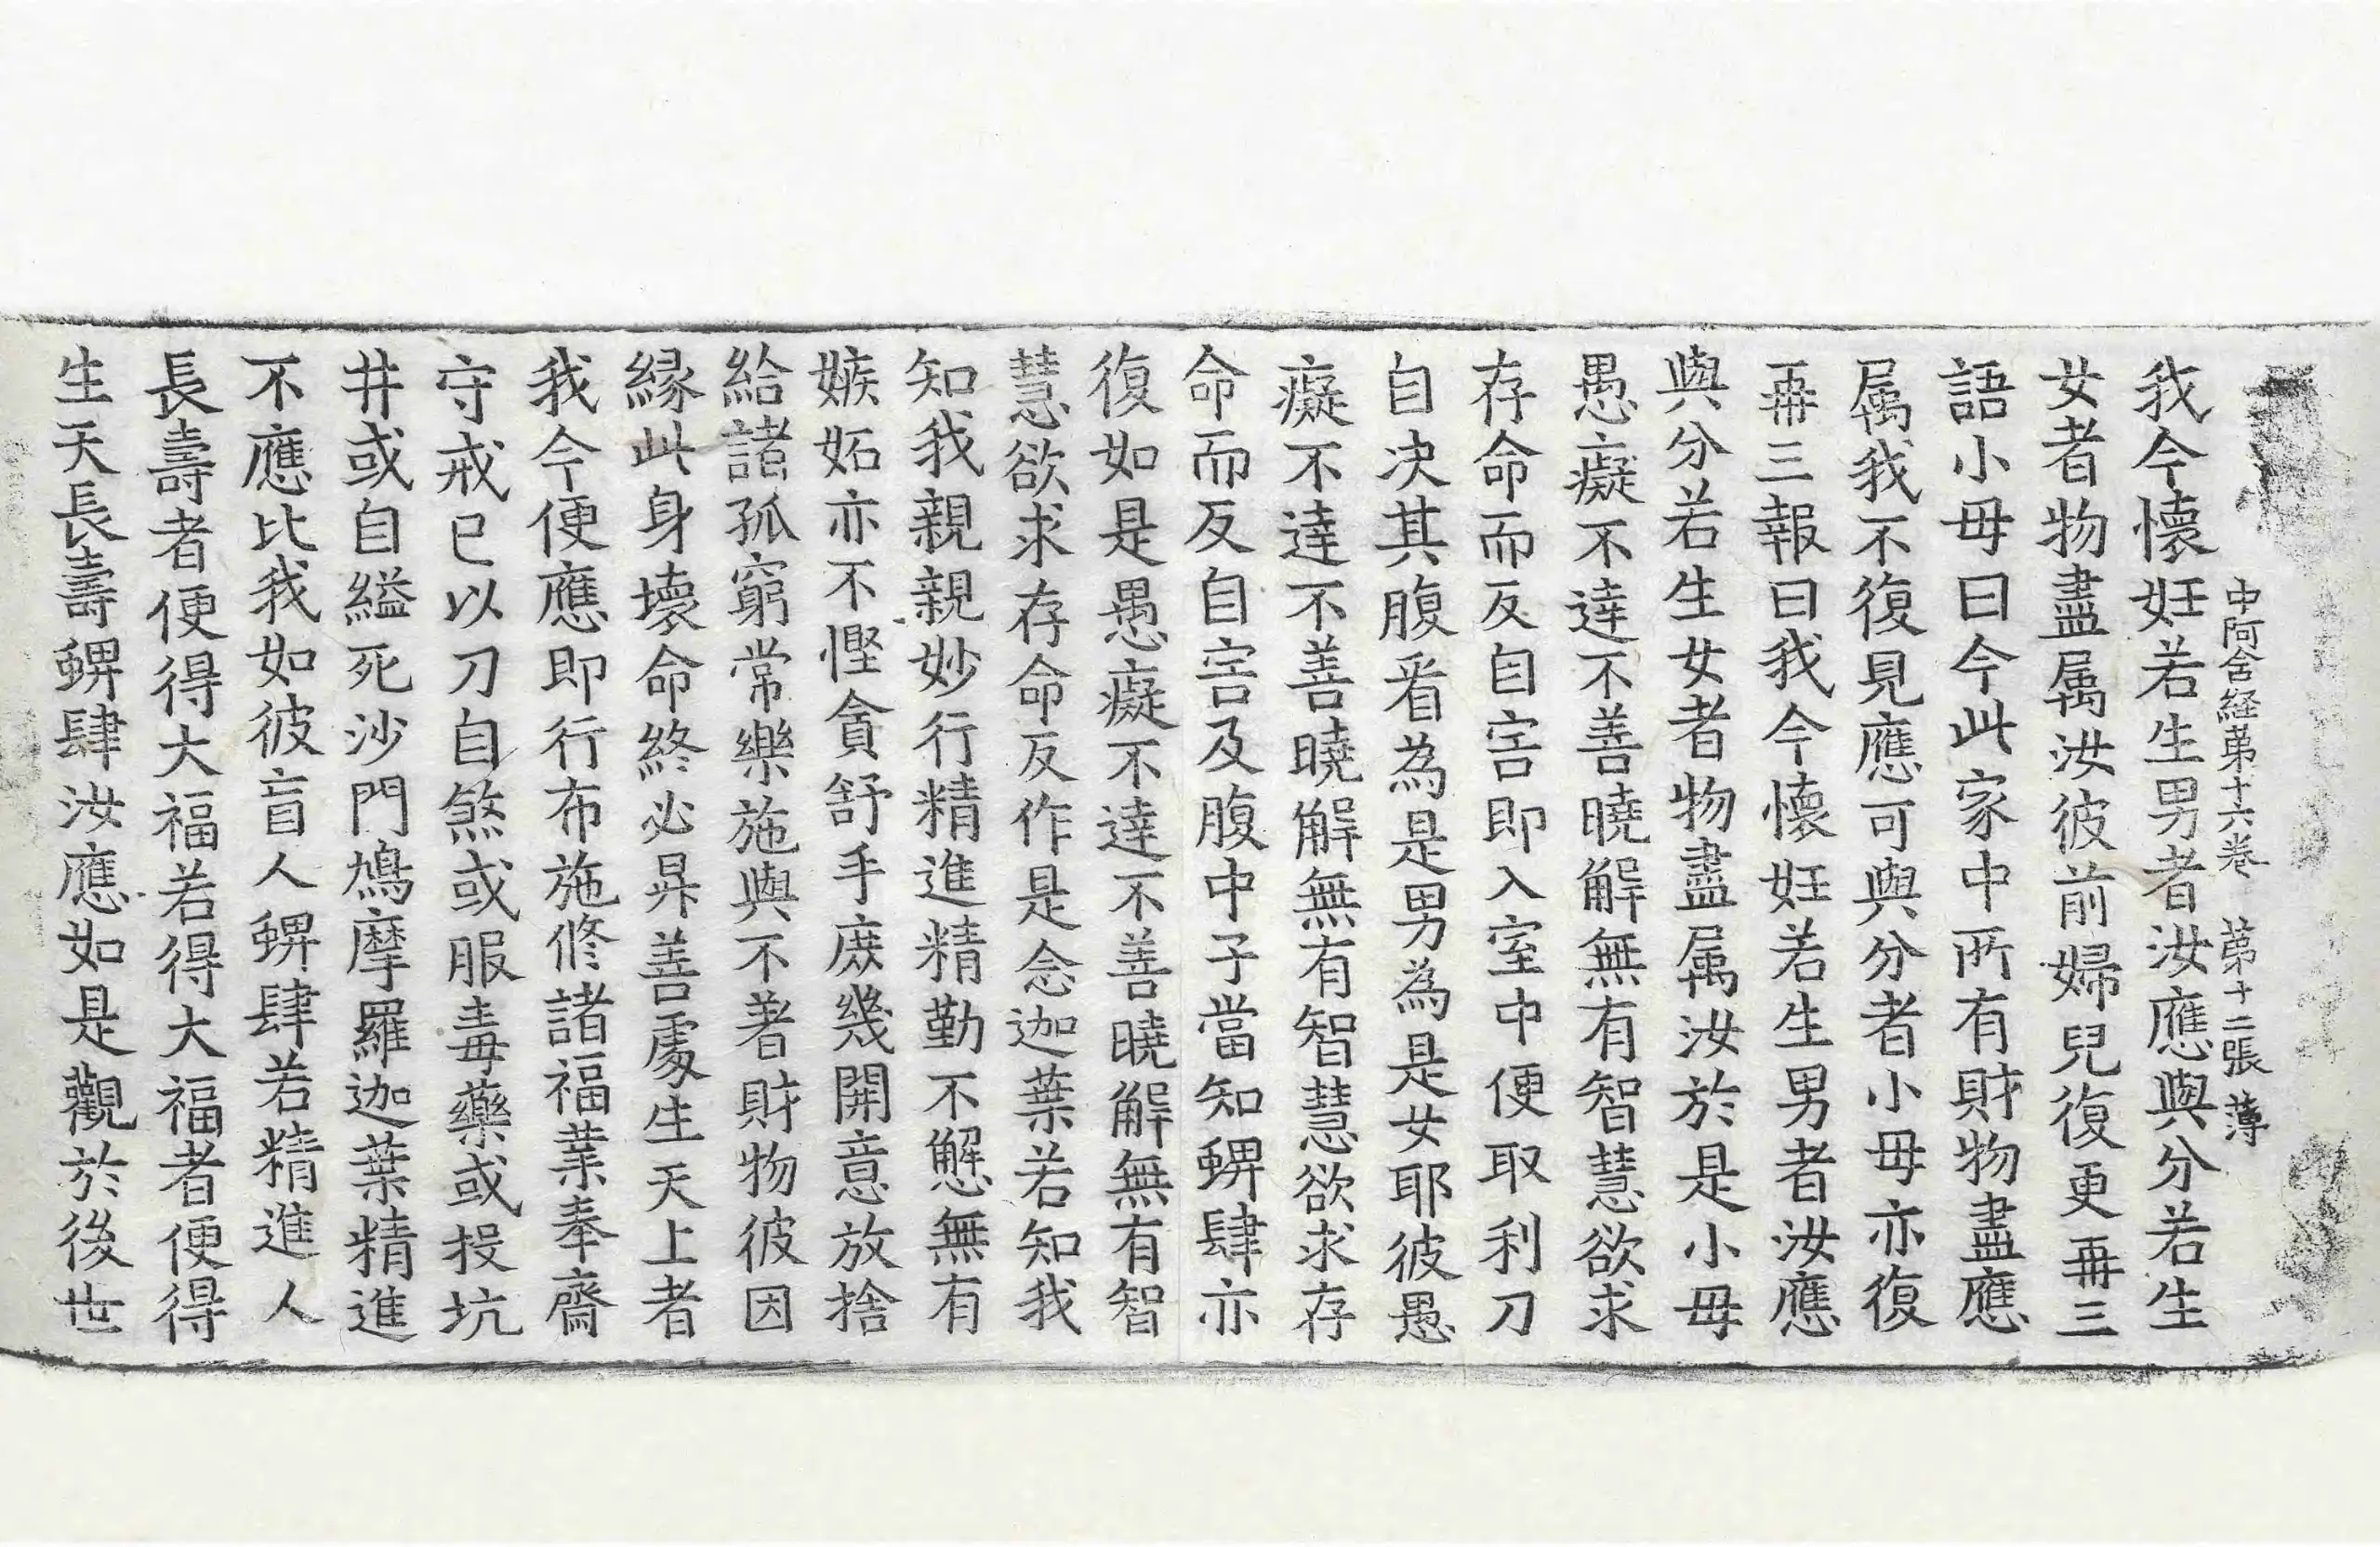 中阿含経第十六巻　第十二張　薄
我今懷妊若生男者汝應與分若生
女者物盡属汝彼前婦兒復更再三
語小母曰今此家中所有財物盡應
属我不復見應可與分者小母亦復
再三報曰我今懷妊若生男者汝應
與分若生女者物盡属汝於是小母
愚癡不達不善曉解無有智慧欲求
存命而反自害即入室中便取利刀
自决其腹看為是男為是女耶彼愚
癡不達不善曉解無有智慧欲求存
命而反自害及腹中子當知蜱肆亦
復如是愚癡不達不善曉解無有智
慧欲求存命反作是念迦葉若知我
知我親親妙行精進精勤不懈無有
嫉妬亦不慳貪舒手庶幾開意放捨
給諸孤窮常樂施與不著財物彼因
緣此身壞命終必昇善處生天上者
我今便應即行布施修諸福業奉齋
守戒已以刀自煞或服毒藥或投坑
井或自縊死沙門鳩摩羅迦葉精進
不應比我如彼盲人蜱肆若精進人
長壽者便得大福若得大福者便得
生天長壽蜱肆汝應如是觀於後世